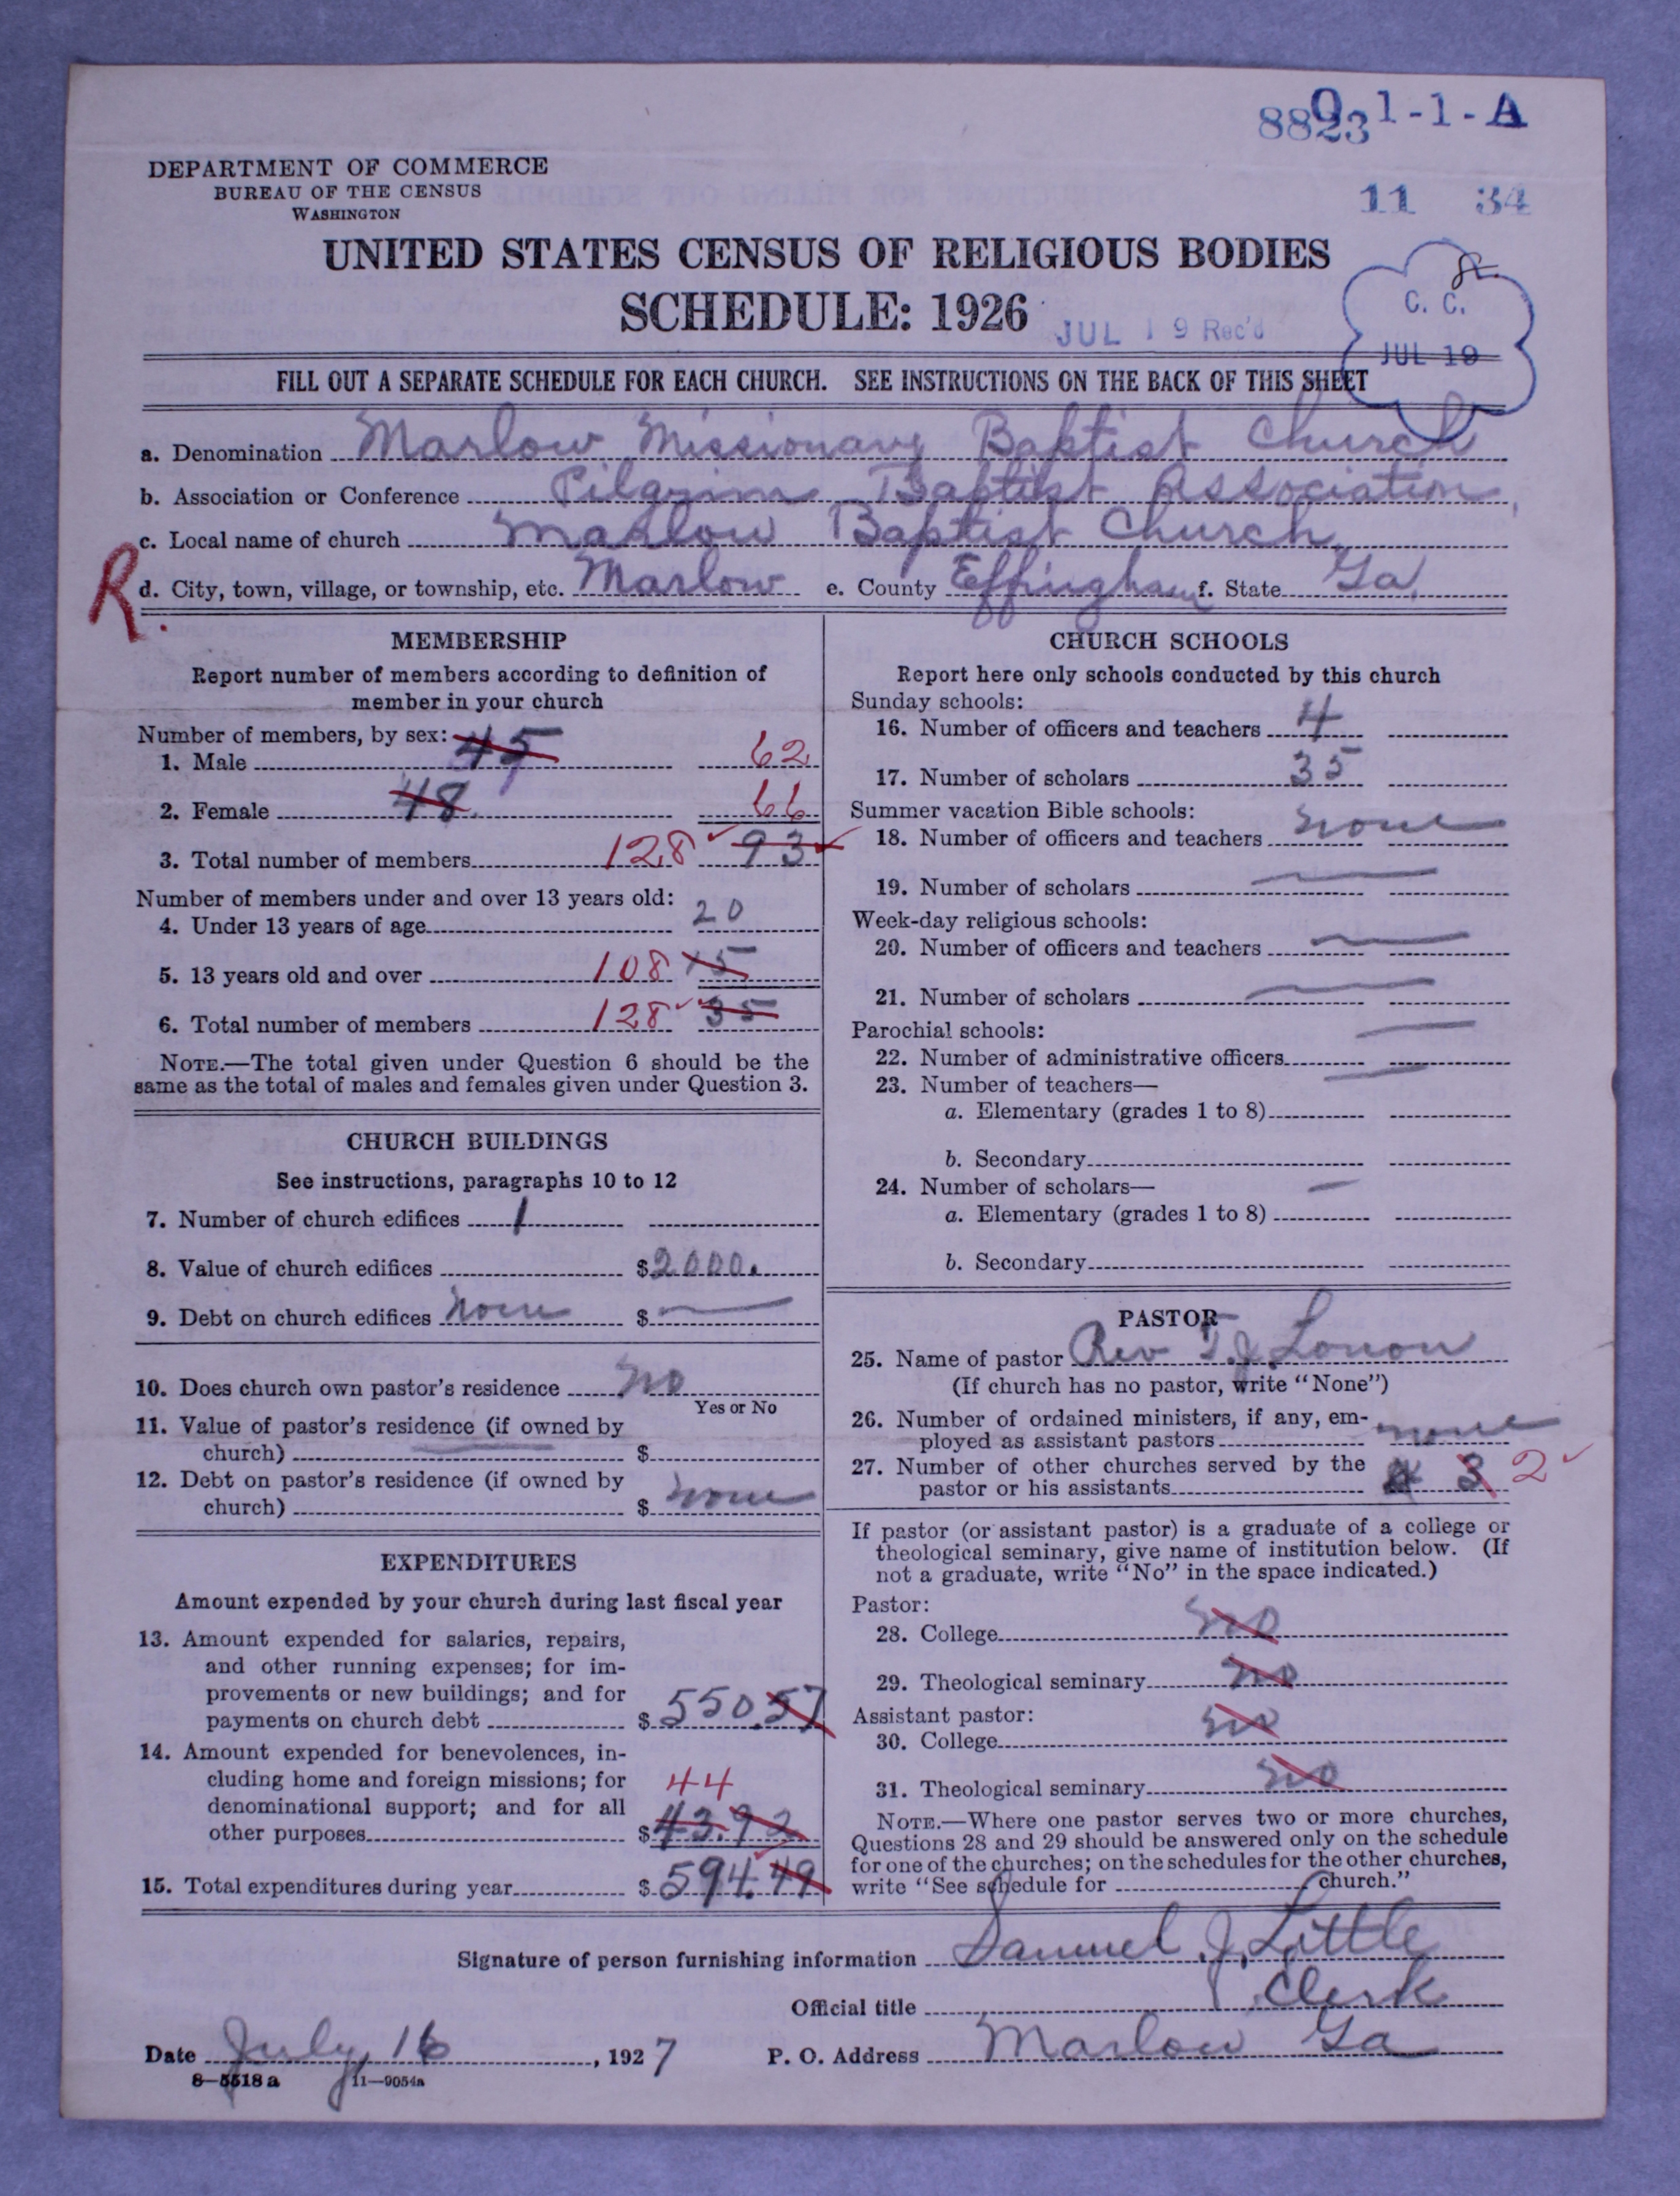 8823 0 1-1-A
11 34
DEPARTMENT OF COMMERCE
BUREAU OF THE CENSUS
WASHINGTON
UNITED STATES CENSUS OF RELIGIOUS BODIES
SCHEDULE: 1926
JUL 19 Rec'd
C. C.
JUL 19
FILL OUT A SEPARATE SCHEDULE FOR EACH CHURCH. SEE INSTRUCTIONS ON THE BACK OF THIS SHEET
a. Denomination Marlow Missionary Baptist Church
b. Association or Conference Pilgrim Baptist Association,
c. Local name of church Marlow Baptist Church,
R.
d. City, town, village, or township, etc. Marlow e. County Effingham f. State Ga.
MEMBERSHIP
Report number of members according to definition of
member in your church
Number of members, by sex:
1. Male 45 62
2. Female 48. 66
3. Total number of members 128 93
Number of members under and over 13 years old:
4. Under 13 years of age 20
5. 13 years old and over 108 15
6. Total number of members 128 35
NOTE.—The total given under Question 6 should be the
same as the total of males and females given under Question 3.
CHURCH BUILDINGS
See instructions, paragraphs 10 to 12
7. Number of church edifices 1
8. Value of church edifices $2000.
9. Debt on church edifices none $ —
10. Does church own pastor's residence no
Yes or No
11. Value of pastor's residence (if owned by
church) $
12. Debt on pastor's residence (if owned by
church) $ none
EXPENDITURES
Amount expended by your church during last fiscal year
13. Amount expended for salaries, repairs,
and other running expenses; for im-
provements or new buildings; and for
payments on church debt $550.57
14. Amount expended for benevolences, in-
cluding home and foreign missions; for 44
denominational support; and for all
other purposes $43.92
15. Total expenditures during year $594.49
CHURCH SCHOOLS
Report here only schools conducted by this church
Sunday schools:
16. Number of officers and teachers 4
17. Number of scholars 35
Summer vacation Bible schools:
18. Number of officers and teachers none
19. Number of scholars —
Week-day religious schools:
20. Number of officers and teachers —
21. Number of scholars —
Parochial schools:
22. Number of administrative officers —
23. Number of teachers—
a. Elementary (grades 1 to 8)
b. Secondary
24. Number of scholars—
a. Elementary (grades 1 to 8)
b. Secondary
PASTOR
25. Name of pastor Rev T. J.
(If church has no pastor, write "None")
26. Number of ordained ministers, if any, em-
ployed as assistant pastors none
27. Number of other churches served by the
pastor or his assistants 3 2
If pastor (or assistant pastor) is a graduate of a college or
theological seminary, give name of institution below. (If
not a graduate, write "No" in the space indicated.)
Pastor:
28. College no
29. Theological seminary no
Assistant pastor:
30. College no
31. Theological seminary no
NOTE.—Where one pastor serves two or more churches,
Questions 28 and 29 should be answered only on the schedule
for one of the churches; on the schedules for the other churches,
write "See schedule for church."
Signature of person furnishing information Samuel J. Little
Official title Clerk
Date July 16, 1927 P. O. Address Marlow Ga
8—5518a 11—9054a